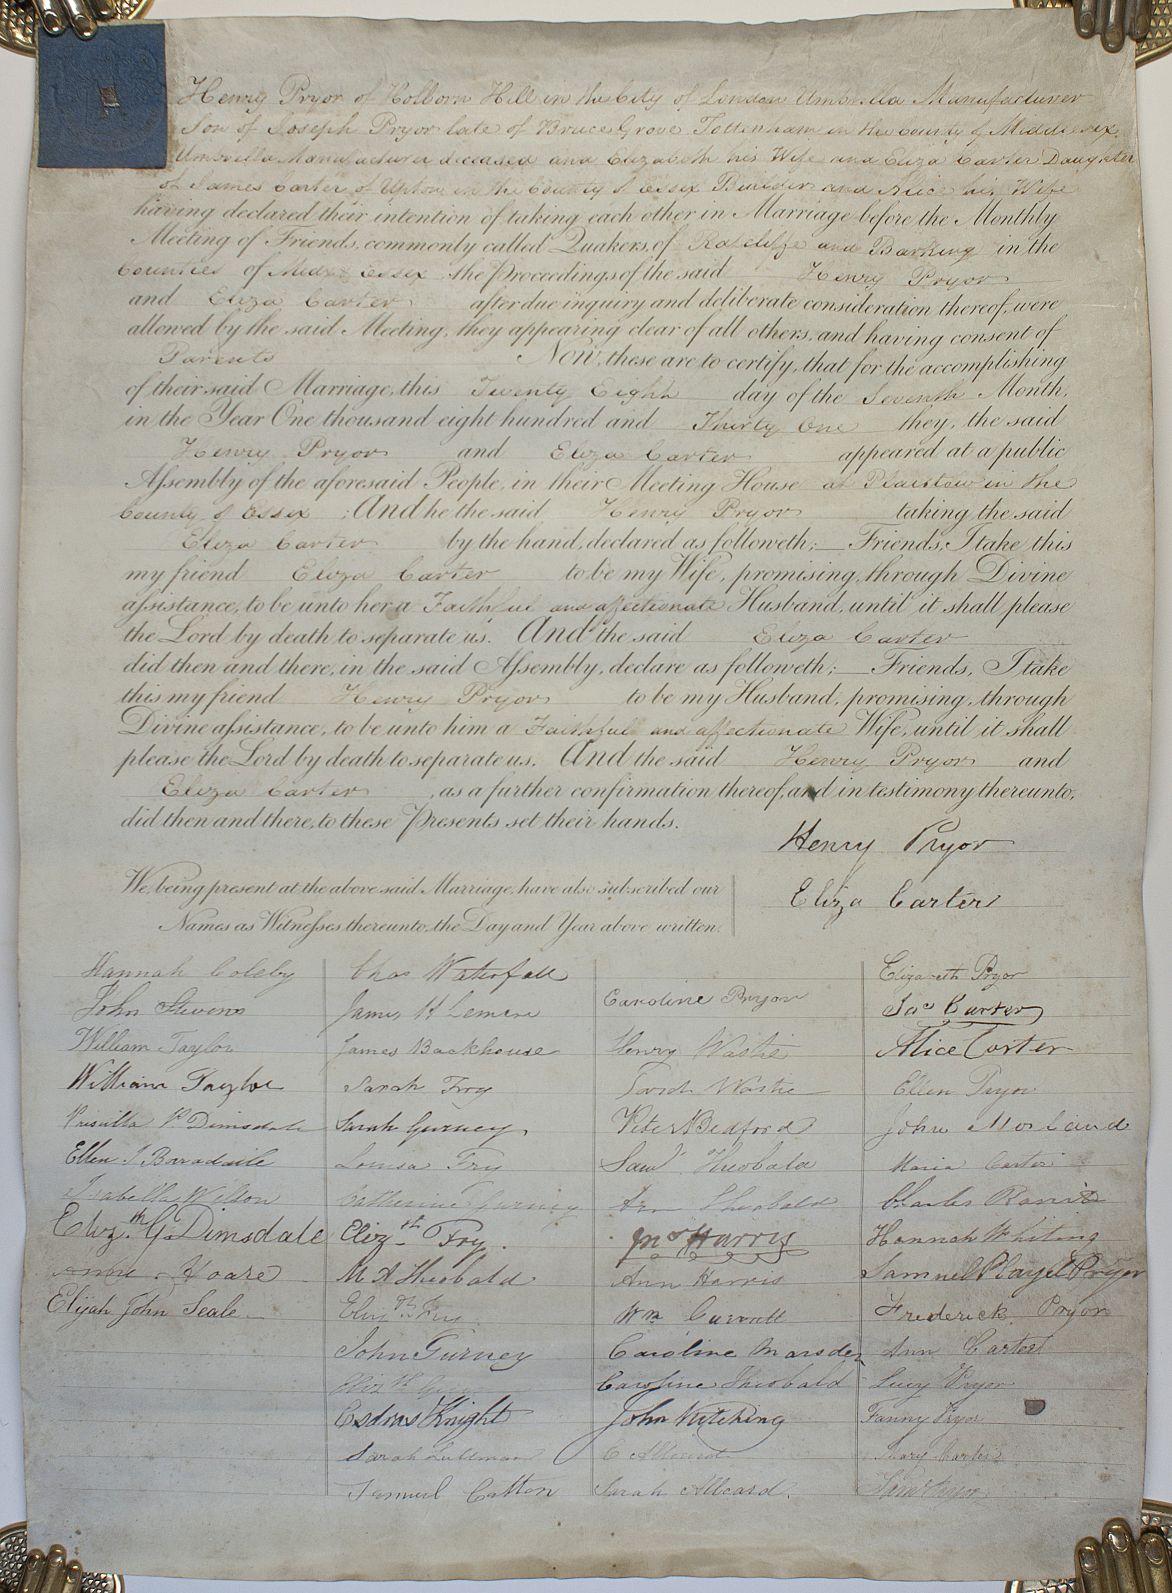 Henry Pryor of Holborn Hill in the City of London Umbrella Manufacturer
Son of Joseph Pryor late of Bruce Grove Tottenham in the County of Middlesex
Umbrella Manufacturer deceased and Elizabeth his Wife and Eliza Carter Daughter
of James Carter of Upton in the County of Essex Builder and Alice his Wife
having declared their intention of taking each other in Marriage before the Monthly
Meeting of Friends, commonly called Quakers, of Ratcliffe and Barking in the
Counties of Midx & Essex, the Proceedings of the said Henry Pryor
and Eliza Carter after due inquiry and deliberate consideration thereof, were
allowed by the said Meeting, they appearing clear of all others, and having consent of
Parents Now, these are to certify, that for the accomplishing
of their said Marriage, this Twenty Eighth day of the Seventh Month,
in the Year One thousand eight hundred and Thirty One they, the said
Henry Pryor and Eliza Carter appeared at a public
Assembly of the aforesaid People, in their Meeting House at Plaistow in the
County of Essex; And he the said Henry Pryor taking the said
Eliza Carter by the hand, declared as followeth;—Friends, I take this
my friend Eliza Carter to be my Wife, promising, through Divine
assistance, to be unto her a Faithful and affectionate Husband, until it shall please
the Lord by death to separate us. And the said Eliza Carter
did then and there, in the said Assembly, declare as followeth;—Friends, I take
this my friend Henry Pryor to be my Husband, promising, through
Divine assistance, to be unto him a Faithful and affectionate Wife, until it shall
please the Lord by death to separate us. And the said Henry Pryor and
Eliza Carter, as a further confirmation thereof, and in testimony thereunto,
did then and there, to these Presents set their hands.
Henry Pryor
Eliza Carter
We, being present at the above said Marriage, have also subscribed our
Names as Witnesses thereunto, the Day and Year above written.
Hannah Coleby
John Stevens
William Taylor
William Taylor
Priscilla Dimsdale
Ellen J Baradaile
Isabella Wilson
Elizth G. Dimsdale
Anne Hoare
Elijah John Seale
Chas Waterfall
James H Lemere
James Backhouse
Sarah Fry
Sarah Gurney
Louisa Fry
Catherine Gurney
Elizth Fry.
M A Theobald
Elizth Fry
John Gurney
Elizth
Esdras Knight
Sarah
Samuel Catton
Caroline Pryor
Henry
Sarah
Peter Bedford
Saml Theobald
Ann Theobald
Jno Harris
Ann Harris
Wm
Caroline Marsden
Caroline Theobald
John Kitching
C Allcard
Sarah Allcard.
Elizabeth Pryor
Jas Carter
Alice Carter
Ellen Pryor
John Morland
Maria Carter
Charles
Hannah Whiting
Samuel Playel Pryor
Frederick Pryor
Ann Carter
Lucy Pryor
Fanny Pryor
Mary Carter